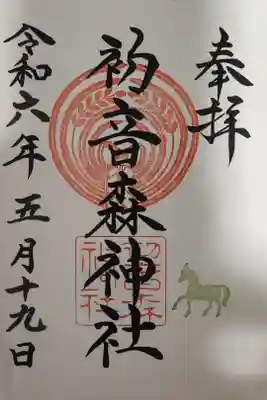 奉拝
初音森神社
初音森
神社
令和六年五月十九日